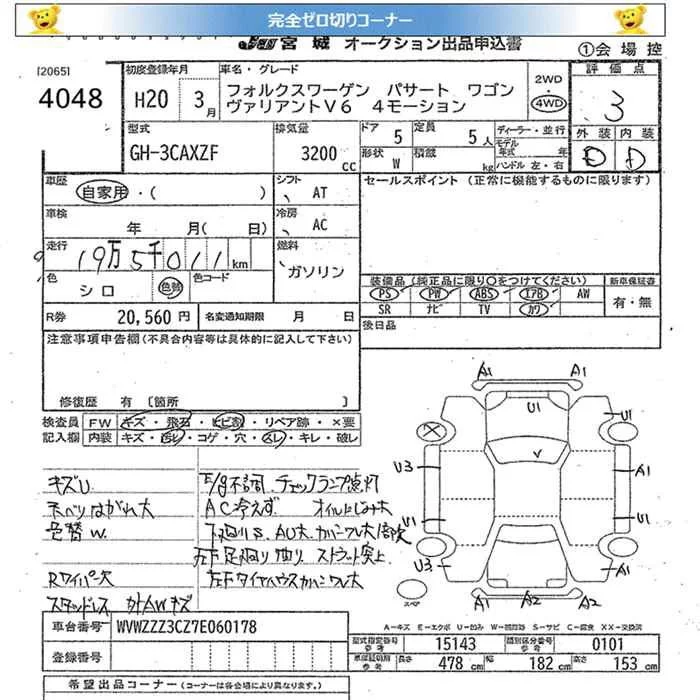 完全ゼロ切りコーナー
JU 宮城 オークション出品申込書
①会場控
[2065]
4048
初度登録年月
H20 3月
車名・グレード
フォルクスワーゲン パサート ワゴン
ヴァリアントV6 4モーション
2WD
・
4WD
評価点
3
外装 内装
D D
型式
GH-3CAXZF
排気量
3200 cc
ドア 5
定員 5人
形状 W
積載 kg
ディーラー・並行
モデル年式 年
ハンドル 左・右
車歴
自家用・( )
シフト AT
セールスポイント (正常に機能するものに限ります)
車検
年 月( 日)
冷房 AC
走行
19万5千011km
燃料
ガソリン
色
シロ
色替
色コード
装備品 (純正品に限り○をつけてください)
新車保証書
PS PW ABS エアB AW
有・無
SR ナビ TV カワ
R券 20,560円
名変通知期限 月 日
後日品
注意事項申告欄(不具合内容等は具体的に記入して下さい)
修復歴 有 [箇所 ]
検査員
記入欄
FW キズ・飛石・ヒビ割・リペア跡・×要
内装 キズ・汚レ・コゲ・穴・スレ・キレ・破レ
キズU
天ベリはがれ大
色替W
Rワイパー欠
スタッドレス 社外AWキズ
E/g不調 チェックランプ点灯
AC冷えず オイルにじみ大
下廻りS
左F足廻り ストラット突上
左Fタイヤハウスカバーワレ大
A1 A1
U1
U1
V
U3
A1
U1
U1
U3
A1
A1 A2 A2
スペア
A-キズ E-エクボ U-凹み W-補修跡 S-サビ C-腐食 XX-交換済
車台番号 WVWZZZ3CZ7E060178
登録番号
型式指定番号 15143
類別区分番号 0101
車庫証明用
長さ 478 cm 幅 182 cm 高さ 153 cm
希望出品コーナー (コーナーは各会場により異なります。)